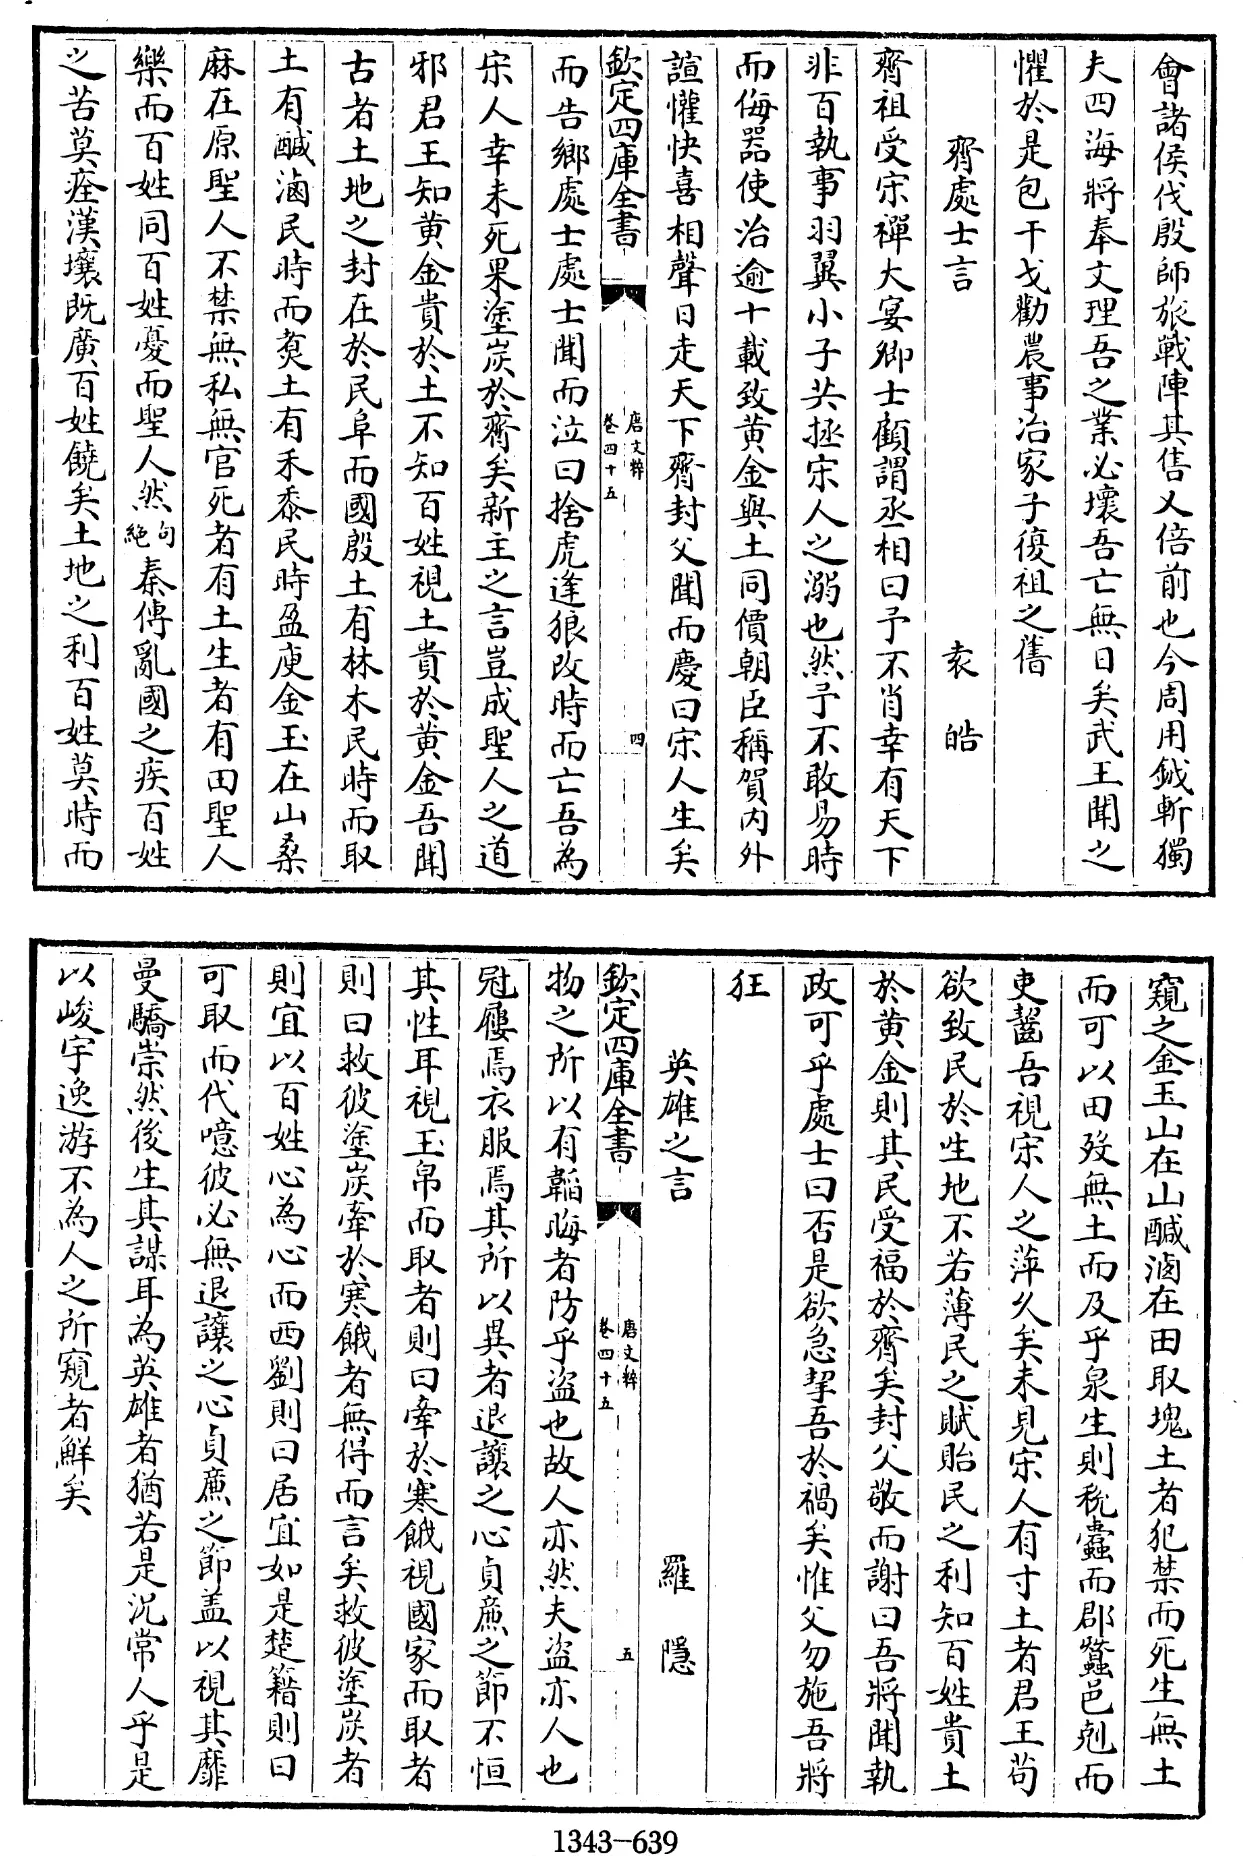 會諸侯伐殷師旅戰陣其售又倍前也今周用鉞斬獨
夫四海將奉文理吾之業必壞吾亡無日矣武王聞之
懼於是包干戈勸農事冶家子復祖之舊
齊處士言　袁皓
齊祖受宋禪大宴卿士顧謂丞相曰予不肖幸有天下
非百執事羽翼小子共拯宋人之溺也然予不敢易時
而侮器使治逾十載致黄金與土同價朝臣稱賀内外
諠懽快喜相聲日走天下齊封父聞而慶曰宋人生矣
欽定四庫全書　唐文粹　卷四十五　四
而告鄉處士處士聞而泣曰捨虎逢狼改時而亡吾為
宋人幸未死果塗炭於齊矣新主之言豈成聖人之道
邪君王知黄金貴於土不知百姓視土貴於黄金吾聞
古者土地之封在於民阜而國殷土有林木民時而取
土有鹹滷民時而煑土有禾黍民時盈庾金玉在山桑
麻在原聖人不禁無私無官死者有土生者有田聖人
樂而百姓同百姓憂而聖人然絶句秦傳亂國之疾百姓
之苦莫痊漢壤既廣百姓饒矣土地之利百姓莫時而
窺之金玉山在山鹹滷在田取塊土者犯禁而死生無土
而可以田歿無土而及乎泉生則稅蠹而郡蠶邑剋而
吏齧吾視宋人之萍久矣未見宋人有寸土者君王苟
欲致民於生地不若薄民之賦貽民之利知百姓貴土
於黄金則其民受福於齊矣封父敬而謝曰吾將聞執
政可乎處士曰否是欲急挈吾於禍矣惟父勿施吾將
狂
英雄之言　羅隱
欽定四庫全書　唐文粹　卷四十五　五
物之所以有韜晦者防乎盜也故人亦然夫盜亦人也
冠屨焉衣服焉其所以異者退讓之心貞亷之節不恒
其性耳視玉帛而取者則曰牽於寒餓視國家而取者
則曰救彼塗炭牽於寒餓者無得而言矣救彼塗炭者
則宜以百姓心為心而西劉則曰居宜如是楚籍則曰
可取而代噫彼必無退讓之心貞亷之節盖以視其靡
曼驕崇然後生其謀耳為英雄者猶若是况常人乎是
以峻宇逸游不為人之所窺者鮮矣
1343-639